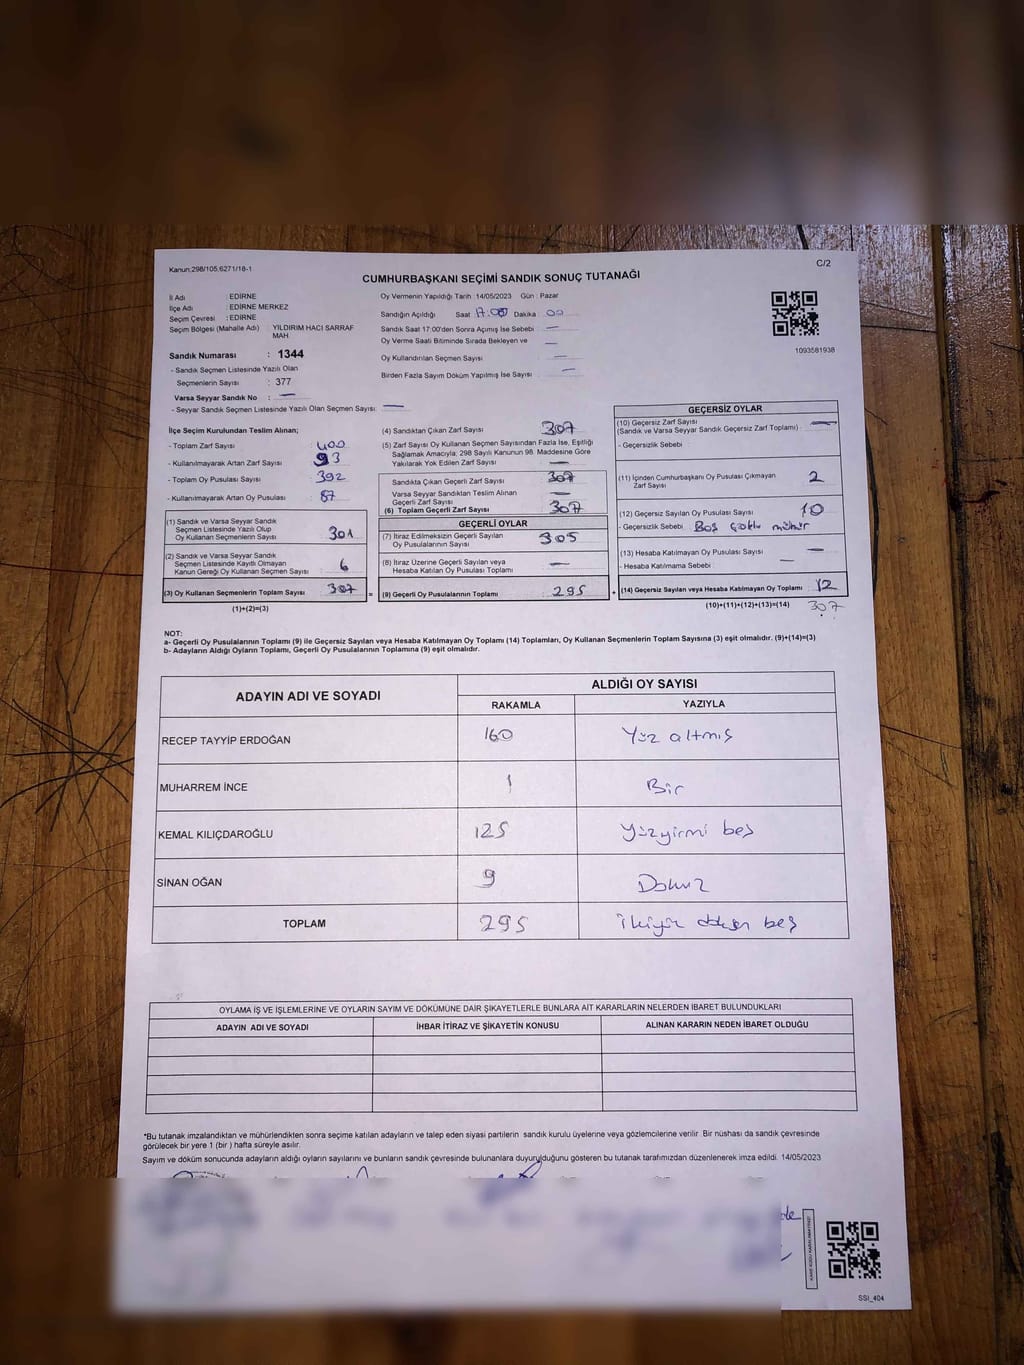 Kanun:298/105,6271/18-1
C/2
CUMHURBAŞKANI SEÇİMİ SANDIK SONUÇ TUTANAĞI
İl Adı : EDİRNE
İlçe Adı : EDİRNE MERKEZ
Seçim Çevresi : EDİRNE
Seçim Bölgesi (Mahalle Adı) : YILDIRIM HACI SARRAF
MAH
Sandık Numarası : 1344
- Sandık Seçmen Listesinde Yazılı Olan
Seçmenlerin Sayısı : 377
Varsa Seyyar Sandık No : —
- Seyyar Sandık Seçmen Listesinde Yazılı Olan Seçmen Sayısı: —
Oy Vermenin Yapıldığı Tarih :14/05/2023 Gün : Pazar
Sandığın Açıldığı Saat 17.00 Dakika 00
Sandık Saat 17:00'den Sonra Açımış İse Sebebi —
Oy Verme Saati Bitiminde Sırada Bekleyen ve —
Oy Kullandırılan Seçmen Sayısı —
Birden Fazla Sayım Döküm Yapılmış İse Sayısı —
1093581938
İlçe Seçim Kurulundan Teslim Alınan;
- Toplam Zarf Sayısı 400
- Kullanılmayarak Artan Zarf Sayısı 93
- Toplam Oy Pusulası Sayısı 392
- Kullanılmayarak Artan Oy Pusulası 87
(1) Sandık ve Varsa Seyyar Sandık
Seçmen Listesinde Yazılı Olup
Oy Kullanan Seçmenlerin Sayısı 301
(2) Sandık ve Varsa Seyyar Sandık
Seçmen Listesinde Kayıtlı Olmayan
Kanun Gereği Oy Kullanan Seçmen Sayısı 6
(3) Oy Kullanan Seçmenlerin Toplam Sayısı 307 =
(1)+(2)=(3)
(4) Sandıktan Çıkan Zarf Sayısı 307
(5) Zarf Sayısı Oy Kullanan Seçmen Sayısından Fazla İse, Eşitliği
Sağlamak Amacıyla; 298 Sayılı Kanunun 98. Maddesine Göre
Yakılarak Yok Edilen Zarf Sayısı —
Sandıkta Çıkan Geçerli Zarf Sayısı 307
Varsa Seyyar Sandıktan Teslim Alınan
Geçerli Zarf Sayısı —
(6) Toplam Geçerli Zarf Sayısı 307
GEÇERLİ OYLAR
(7) İtiraz Edilmeksizin Geçerli Sayılan
Oy Pusulalarının Sayısı 305
(8) İtiraz Üzerine Geçerli Sayılan veya
Hesaba Katılan Oy Pusulası Toplamı —
(9) Geçerli Oy Pusulalarının Toplamı 295 +
GEÇERSİZ OYLAR
(10) Geçersiz Zarf Sayısı
(Sandık ve Varsa Seyyar Sandık Geçersiz Zarf Toplamı) —
- Geçersizlik Sebebi
(11) İçinden Cumhurbaşkanı Oy Pusulası Çıkmayan
Zarf Sayısı 2
(12) Geçersiz Sayılan Oy Pusulası Sayısı 10
- Geçersizlik Sebebi Boş Çoklu mühür
(13) Hesaba Katılmayan Oy Pusulası Sayısı —
- Hesaba Katılmama Sebebi —
(14) Geçersiz Sayılan veya Hesaba Katılmayan Oy Toplamı 12
(10)+(11)+(12)+(13)=(14) 307
NOT:
a- Geçerli Oy Pusulalarının Toplamı (9) ile Geçersiz Sayılan veya Hesaba Katılmayan Oy Toplamı (14) Toplamları, Oy Kullanan Seçmenlerin Toplam Sayısına (3) eşit olmalıdır. (9)+(14)=(3)
b- Adayların Aldığı Oyların Toplamı, Geçerli Oy Pusulalarının Toplamına (9) eşit olmalıdır.
ADAYIN ADI VE SOYADI
ALDIĞI OY SAYISI
RAKAMLA YAZIYLA
RECEP TAYYİP ERDOĞAN 160 Yüz altmış
MUHARREM İNCE 1 Bir
KEMAL KILIÇDAROĞLU 125 Yüzyirmi beş
SİNAN OĞAN 9 Dokuz
TOPLAM 295 ikiyüz doksan beş
OYLAMA İŞ VE İŞLEMLERİNE VE OYLARIN SAYIM VE DÖKÜMÜNE DAİR ŞİKAYETLERLE BUNLARA AİT KARARLARIN NELERDEN İBARET BULUNDUKLARI
ADAYIN ADI VE SOYADI İHBAR İTİRAZ VE ŞİKAYETİN KONUSU ALINAN KARARIN NEDEN İBARET OLDUĞU
*Bu tutanak imzalandıktan ve mühürlendikten sonra seçime katılan adayların ve talep eden siyasi partilerin sandık kurulu üyelerine veya gözlemcilerine verilir. Bir nüshası da sandık çevresinde
görülecek bir yere 1 (bir ) hafta süreyle asılır.
Sayım ve döküm sonucunda adayların aldığı oyların sayılarını ve bunların sandık çevresinde bulunanlara duyurulduğunu gösteren bu tutanak tarafımızdan düzenlenerek imza edildi. 14/05/2023
SSI_404